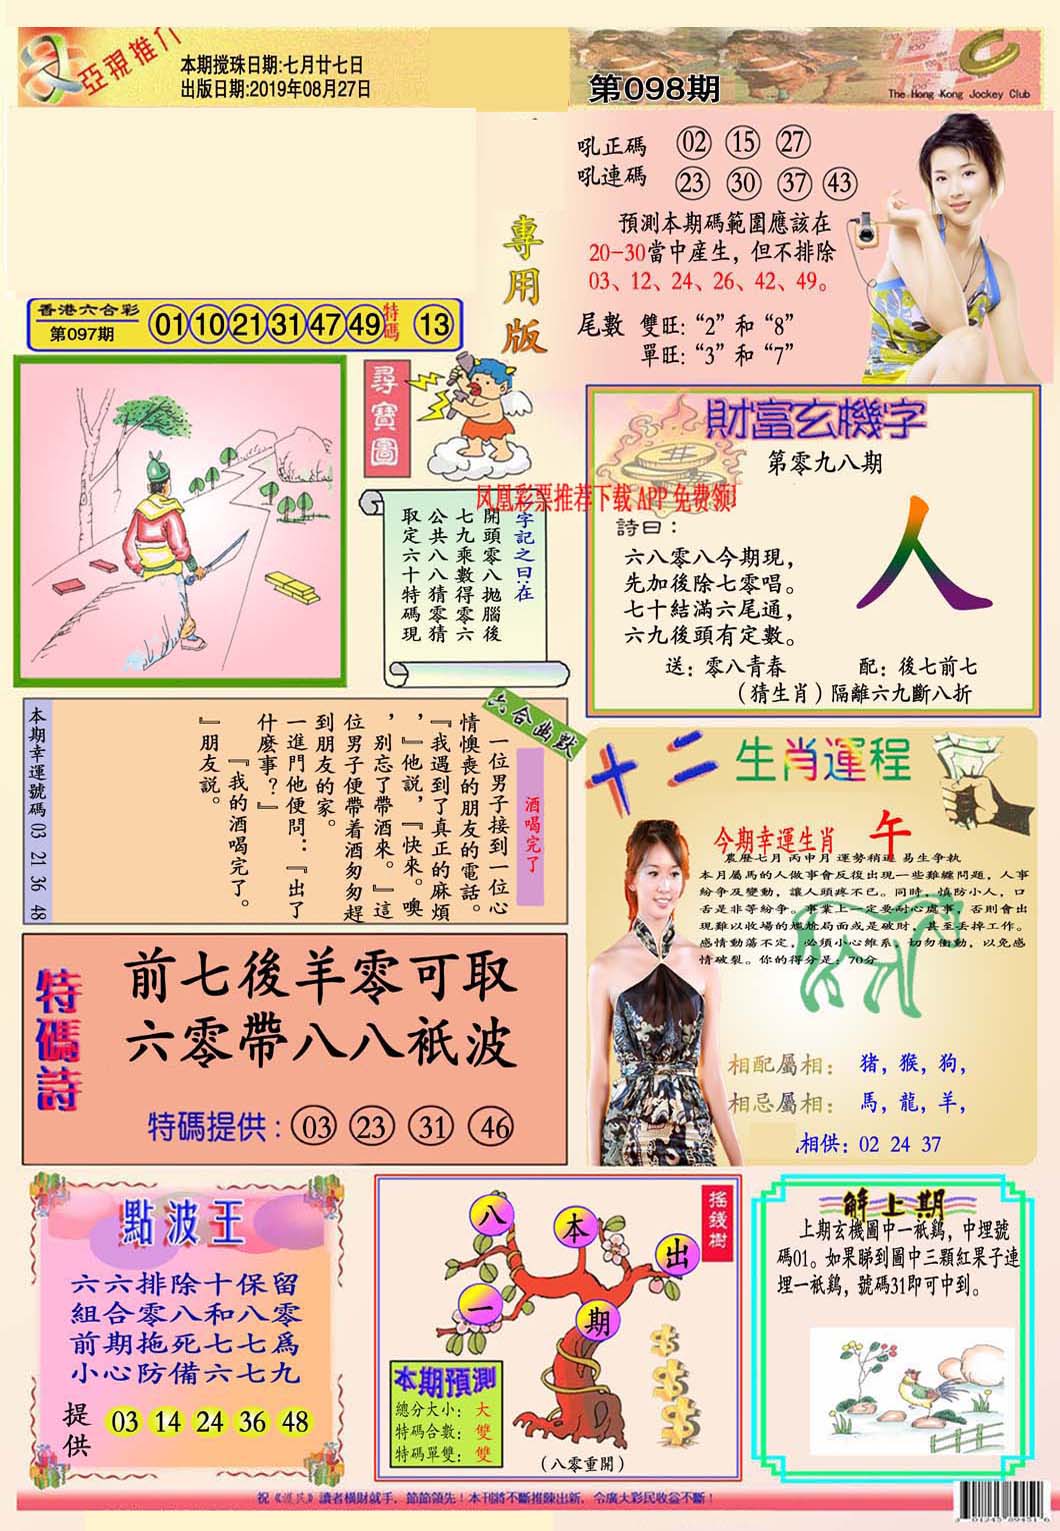 亞視推介
本期搅珠日期:七月廿七日
出版日期:2019年08月27日
第098期
The Hong Kong Jockey Club
專用版
吼正碼 02 15 27
吼連碼 23 30 37 43
預測本期碼範圍應該在
20-30當中産生，但不排除
03、12、24、26、42、49。
尾數 雙旺:“2”和“8”
單旺:“3”和“7”
香港六合彩
第097期
01 10 21 31 47 49 特碼 13
尋寶圖
凤凰彩票推荐下载 APP 免费领
字記之曰:在
開頭零八拋腦後
七九乘數得零六
公共八八猜零猜
取定六十特碼現
財富玄機字
第零九八期
詩曰：
人
六八零八今期現，
先加後除七零唱。
七十結滿六尾通，
六九後頭有定數。
送：零八青春 配：後七前七
（猜生肖）隔離六九斷八折
本期幸運號碼 03 21 36 48
六合幽默
酒喝完了
一位男子接到一位心
情懊喪的朋友的電話。
『我遇到了真正的麻煩
，』他說，『快來。噢
，别忘了帶酒來。』這
位男子便帶着酒匆匆趕
到朋友的家。
一進門他便問：『出了
什麼事？』
『我的酒喝完了。
』朋友説。
十二生肖運程
今期幸運生肖 午
農歷七月 丙申月 運勢稍遜 易生争執
本月屬馬的人做事會反復出現一些難纏問題，人事
紛争及變動，讓人頭疼不已。同時，慎防小人，口
舌是非等紛争。事業上一定要耐心處事，否則會出
現難以收場的尴尬局面或是破財，甚至丢掉工作。
感情動蕩不定，必須小心維系，切勿衝動，以免感
情破裂。你的得分是：70分
相配屬相：猪，猴，狗，
相忌屬相：馬，龍，羊，
相供：02 24 37
特碼詩
前七後羊零可取
六零帶八八衹波
特碼提供：03 23 31 46
點波王
六六排除十保留
組合零八和八零
前期拖死七七爲
小心防備六七九
提供 03 14 24 36 48
搖錢樹
八 本 出 一 期
本期預測
總分大小：大
特碼合數：雙
特碼單雙：雙
（八零重開）
解上期
上期玄機圖中一衹鷄，中埋號
碼01。如果睇到圖中三顆紅果子連
埋一衹鷄，號碼31即可中到。
讀者橫財就手，節節領先！本刊將不斷推陳出新，令廣大彩民收益不斷！